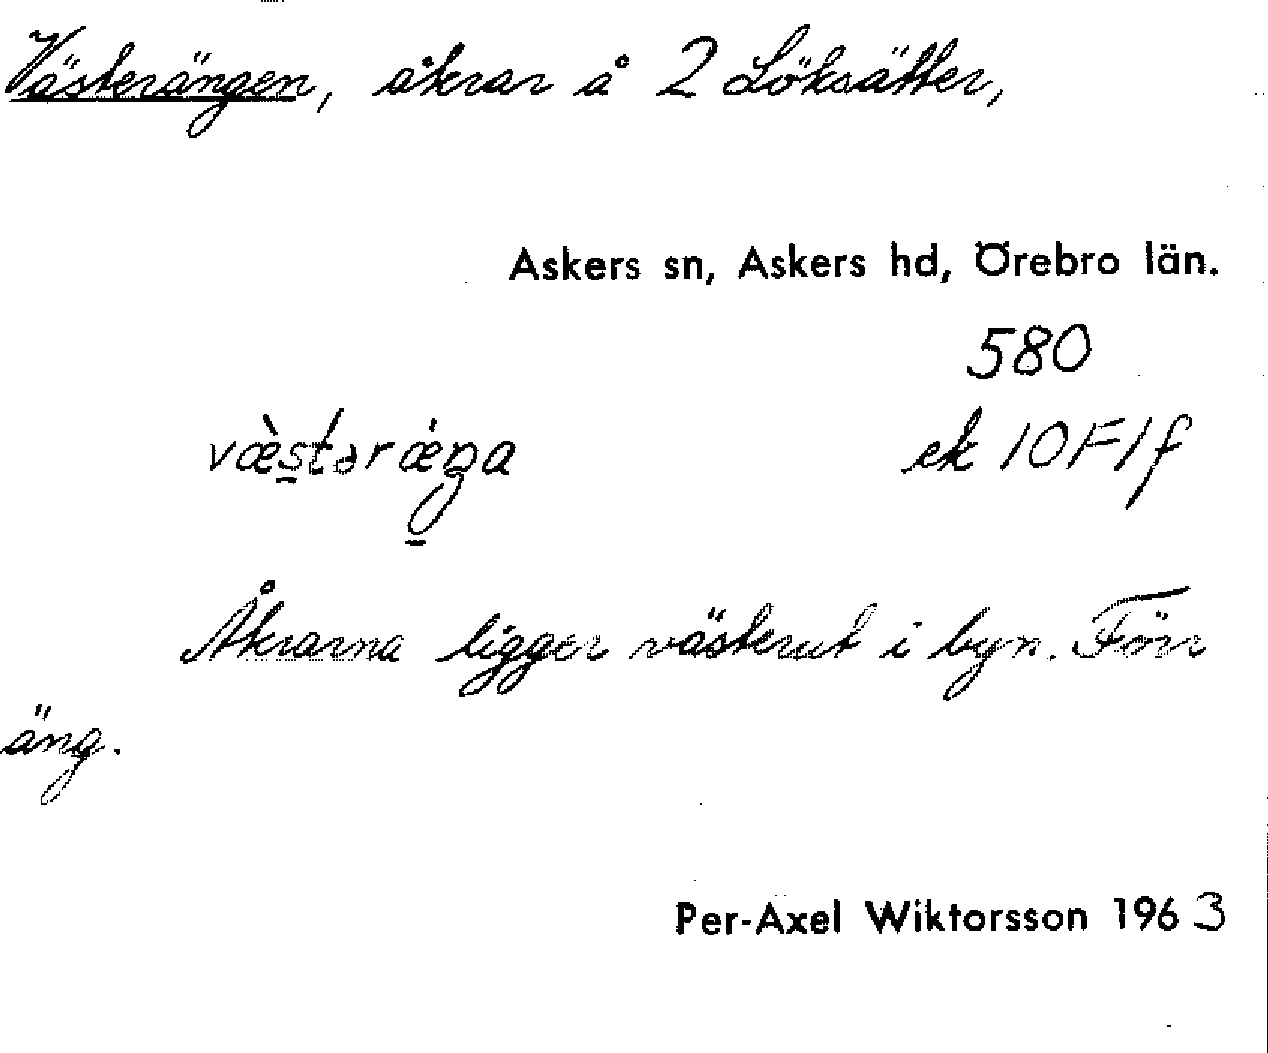 Västerängen, åkrar å 2 Löksätter,
Askers sn, Askers hd, Örebro län.
580
væ̀stərǽŋa ek 10F1f
Åkrarna ligger västerut i byn. Förr
äng.
Per-Axel Wiktorsson 1963